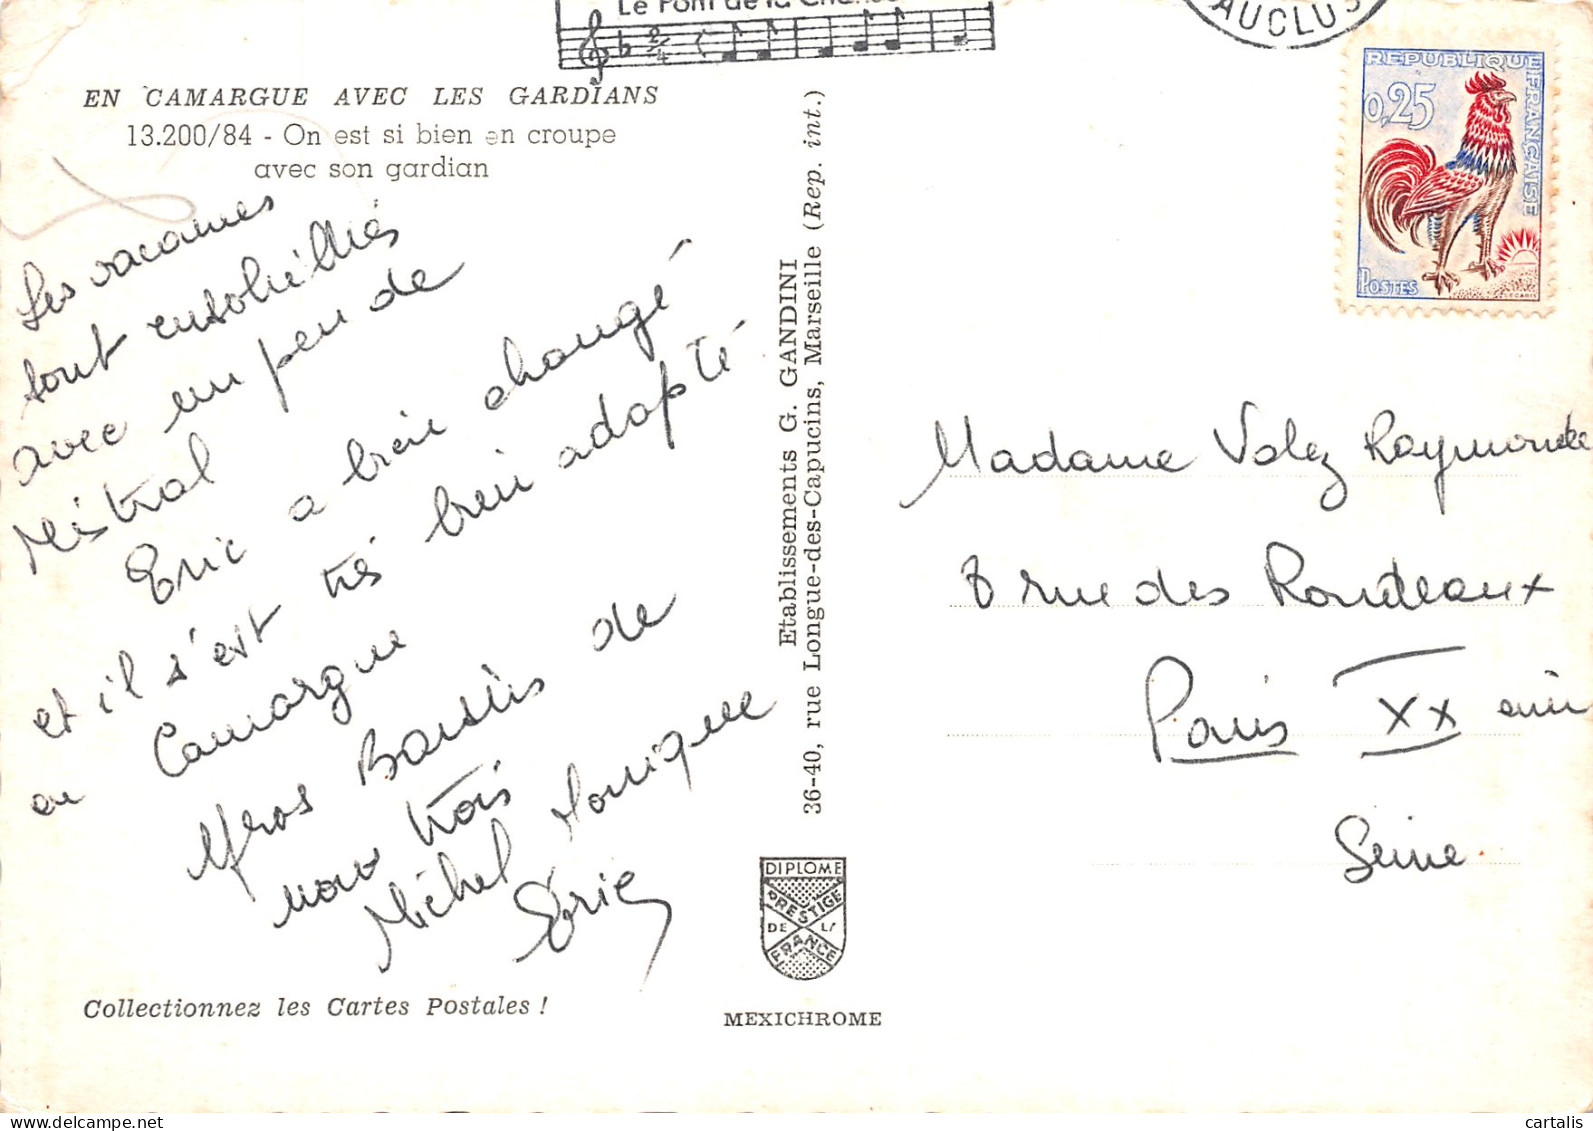 Le Pont de la Chanson
AUCLUS
REPUBLIQUE FRANÇAISE
0,25
POSTES
DECARIS
EN CAMARGUE AVEC LES GARDIANS
13.200/84 - On est si bien en croupe
avec son gardian
Les vacances
sont ensoleillés
avec un peu de
Mistral
Eric a bien changé
et il s'est très bien adapté
en Camargue
Gros Baisers de
nous trois
Michel Monique
Eric
Etablissements G. GANDINI
36-40, rue Longue-des-Capucins, Marseille (Rep. int.)
Madame Volez Raymonde
8 rue des Rondeaux
Paris XX eme
Seine
DIPLOME
PRESTIGE
DE LA
FRANCE
Collectionnez les Cartes Postales !
MEXICHROME
cartalis
delcampe.net